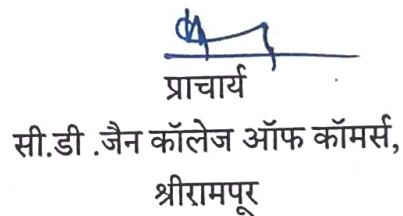 प्राचार्य
सी.डी .जैन कॉलेज ऑफ कॉमर्स,
श्रीरामपूर